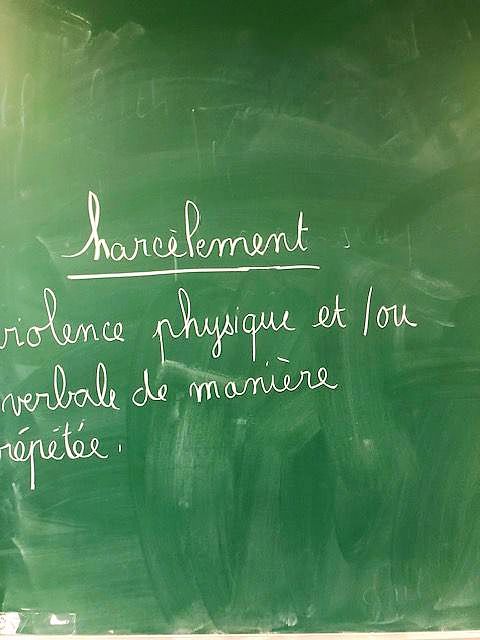 harcèlement
violence physique et / ou
verbale de manière
répétée.